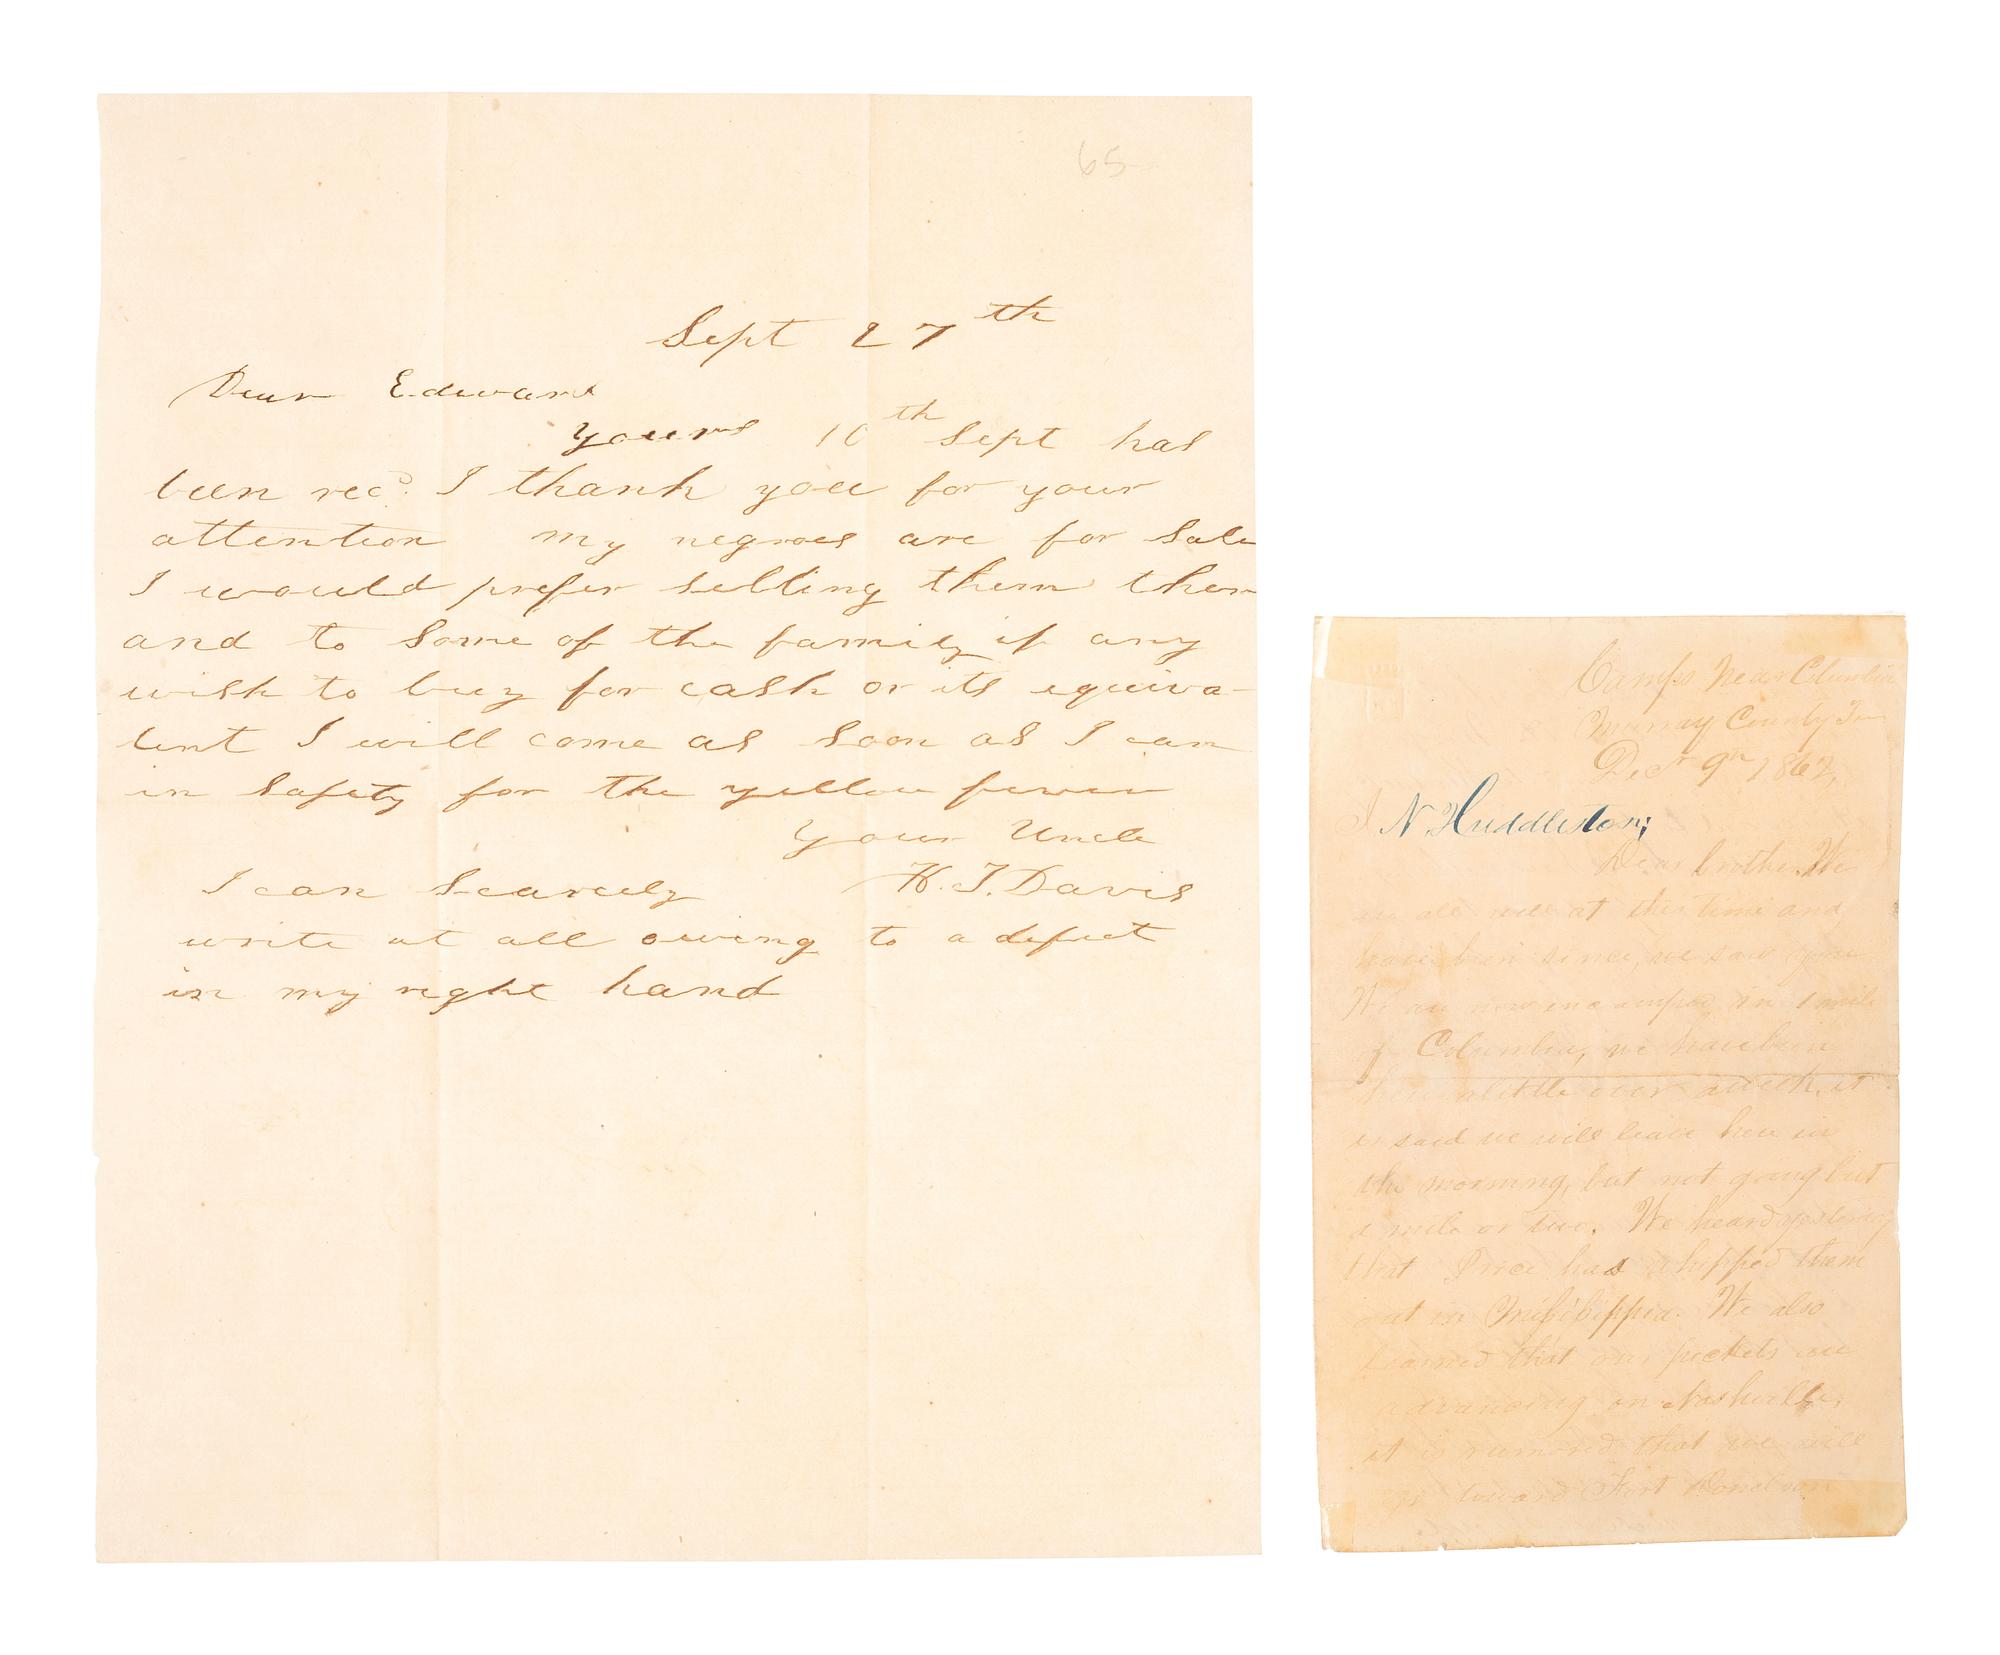 65
Sept 27th
Dear Edward
Yours 10th Sept has
been recd. I thank you for your
attention my negroes are for Sale
I would prefer selling them ther
and to some of the family if any
wish to buy for cash or its equiva-
lent I will come as soon as I can
in safety for the yellow fever
Your Uncle
I can scarcely H. T. Davis
write at all owing to a defect
in my right hand
Camps Near Columbia
Murray County Ten
Decr 9th 1862,
J N Huddleston;
Dear brother. We
are all well at this time and
have been since, we saw you
We are now encamped in 1 mile
of Columbia, we have been
here a little over a week, it
is said we will leave here in
the morning, but not going but
a mile or two. We heard yesterday
that Price had whipped them
out in Missisippia. We also
learned that our pickets are
advancing on Nashville,
it is rumored that we will
go toward Fort Donelson